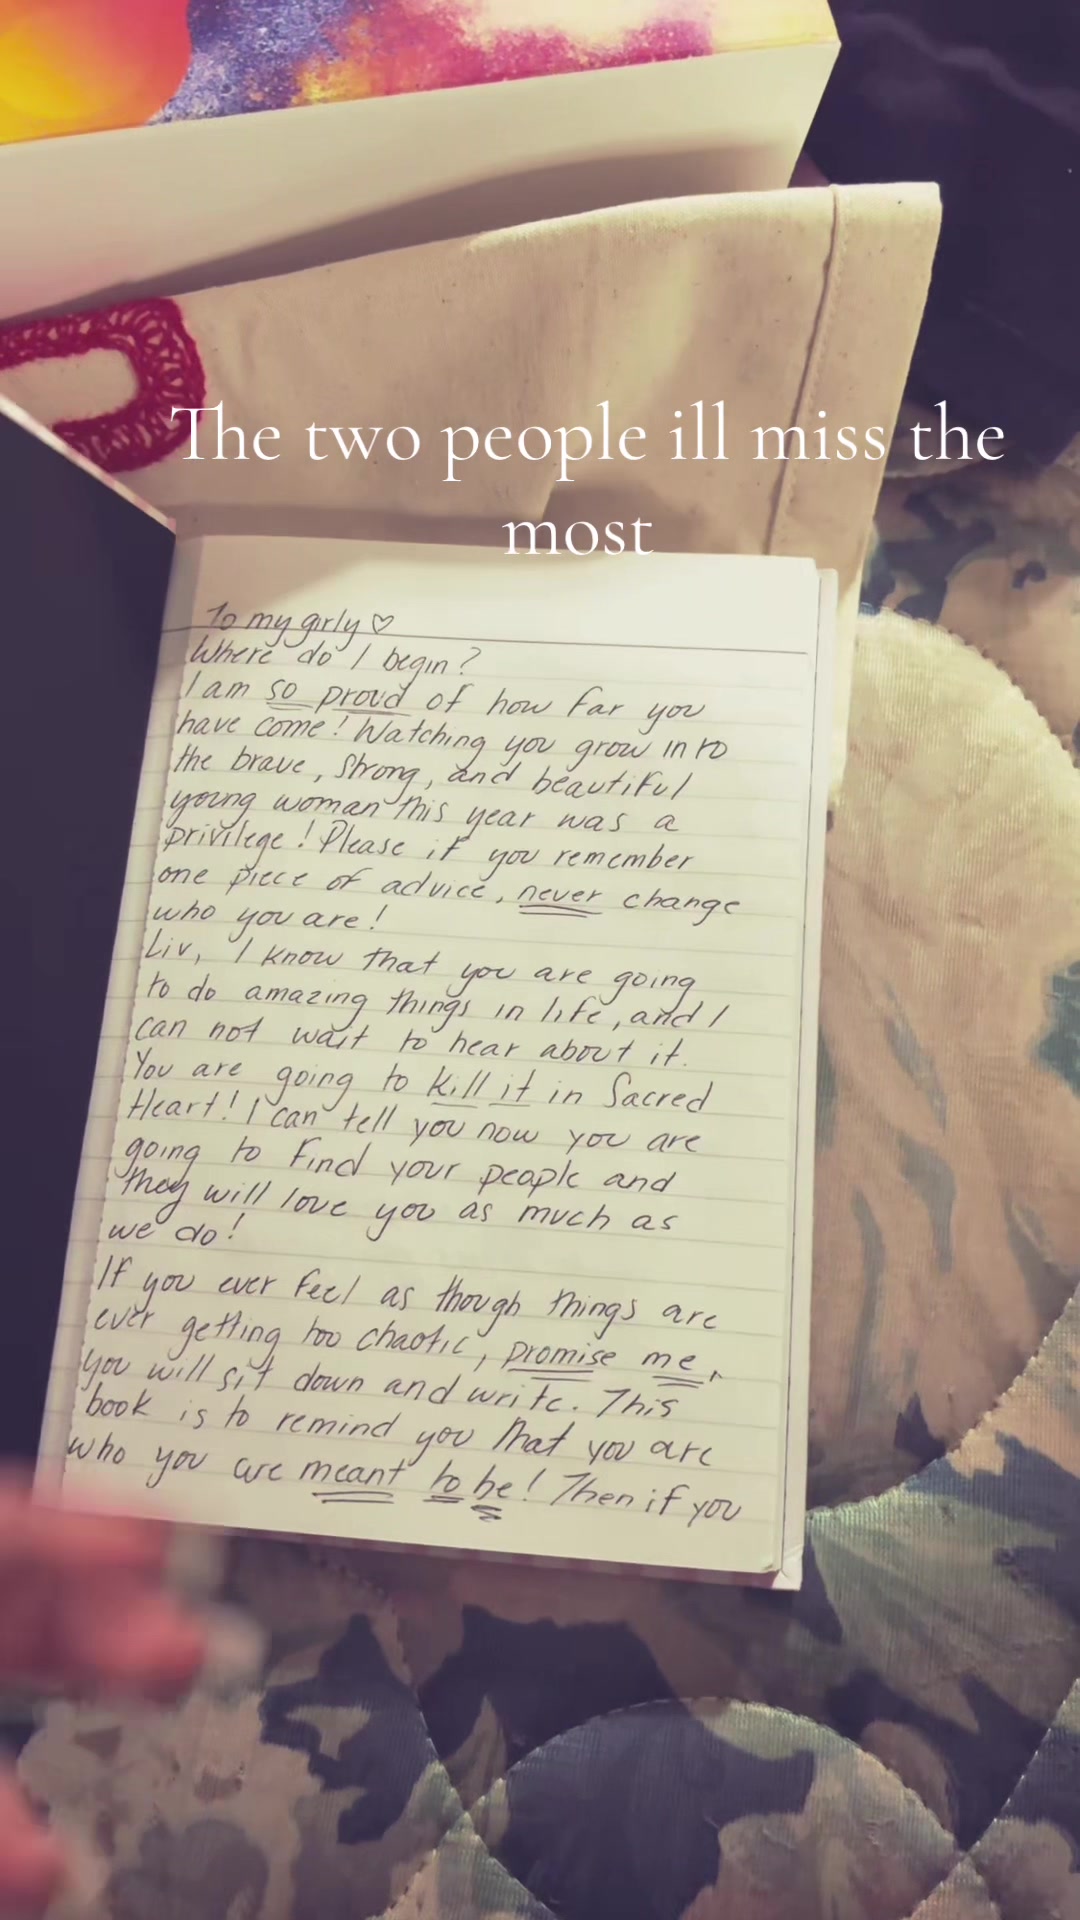 The two people ill miss the
most
To my girly ♡
Where do I begin?
I am so proud of how far you
have come! Watching you grow into
the brave, strong, and beautiful
young woman this year was a
privilege! Please if you remember
one piece of advice, never change
who you are!
Liv, I know that you are going
to do amazing things in life, and I
can not wait to hear about it.
You are going to kill it in Sacred
Heart! I can tell you now you are
going to find your people and
they will love you as much as
we do!
If you ever feel as though things are
ever getting too chaotic, promise me,
you will sit down and write. This
book is to remind you that you are
who you are meant to be! Then if you